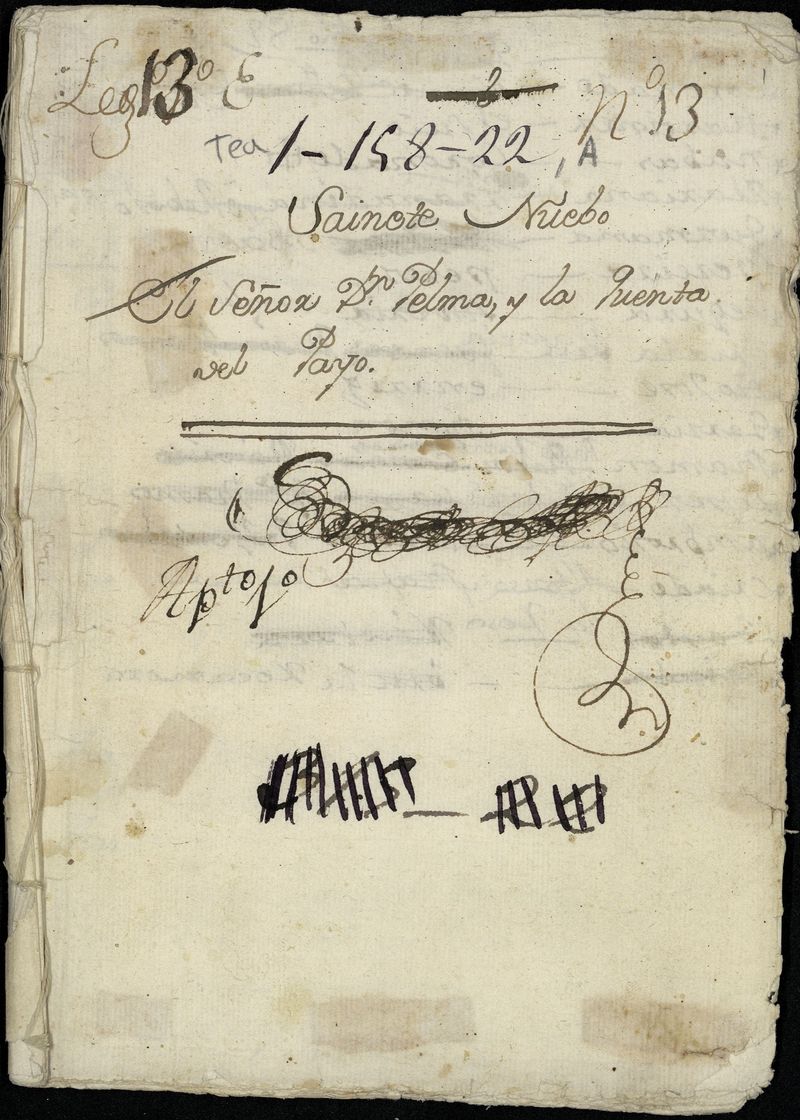 Leg.º 13º E
Nº 13
Tea 1-158-22, A
Sainete Nuebo
El Señor Dn. Pelma, y la Quenta
del Payo.
Apto 1º